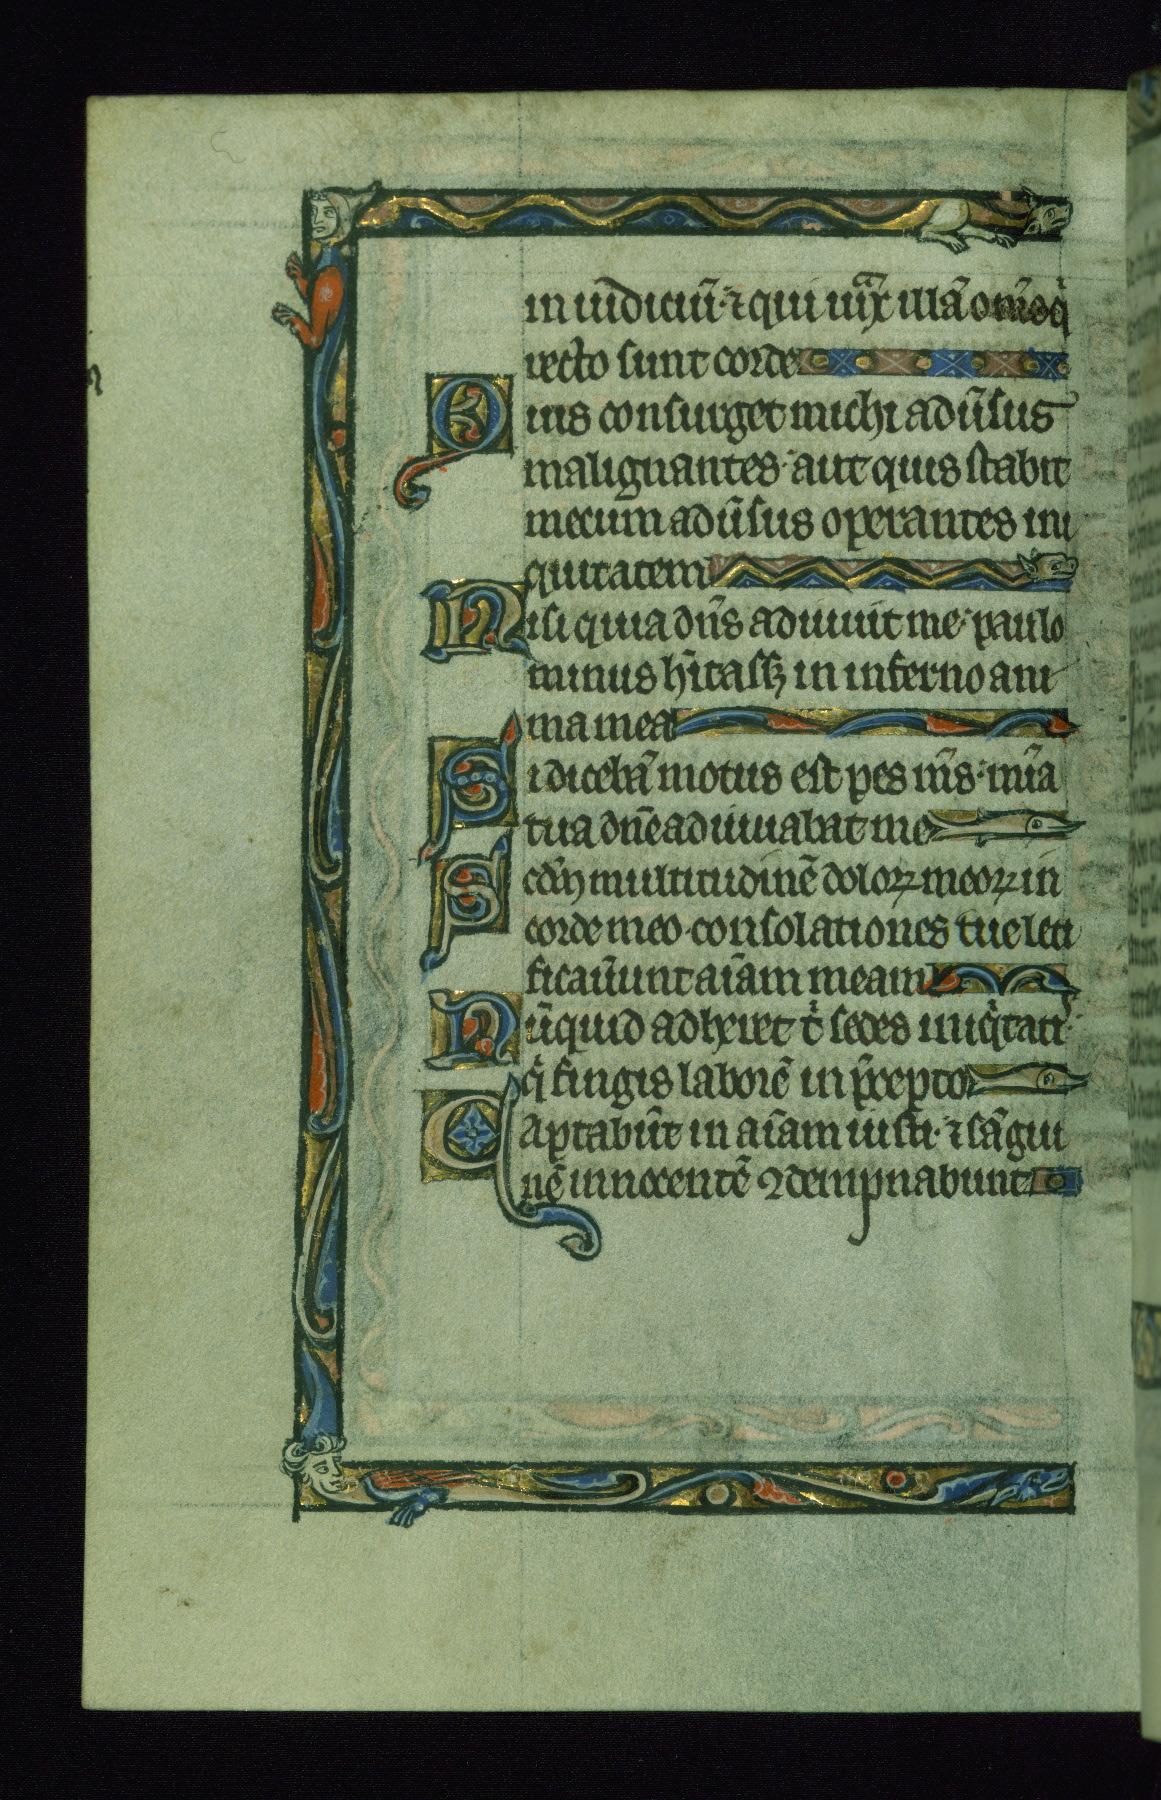 in iudiciū· ⁊ qui iuxͣ illā om̄es q̇
recto sunt corde
Quis consurget michi adūsus
malignantes· aut quis stabit
mecum adūsus operantes ini
quitatem
Nisi quia dn̄s adiuuit me· paulo
minus h̄itass; in inferno ani
ma mea
Si diceba̅ motus est pes m̄s· mīa
tua dn̄e adiuuabat me
Scd̄m multitudinē doloꝝ meoꝝ in
corde meo· consolationes tue leti
ficaūunt aīam meam
Nūquid adheret t̍ sedes iniq̍tatis
q̍ fingis laborē in p̄cepto
Captabūt in aīam iusti· ⁊ sāgui
nē innocentē ꝯdempnabunt